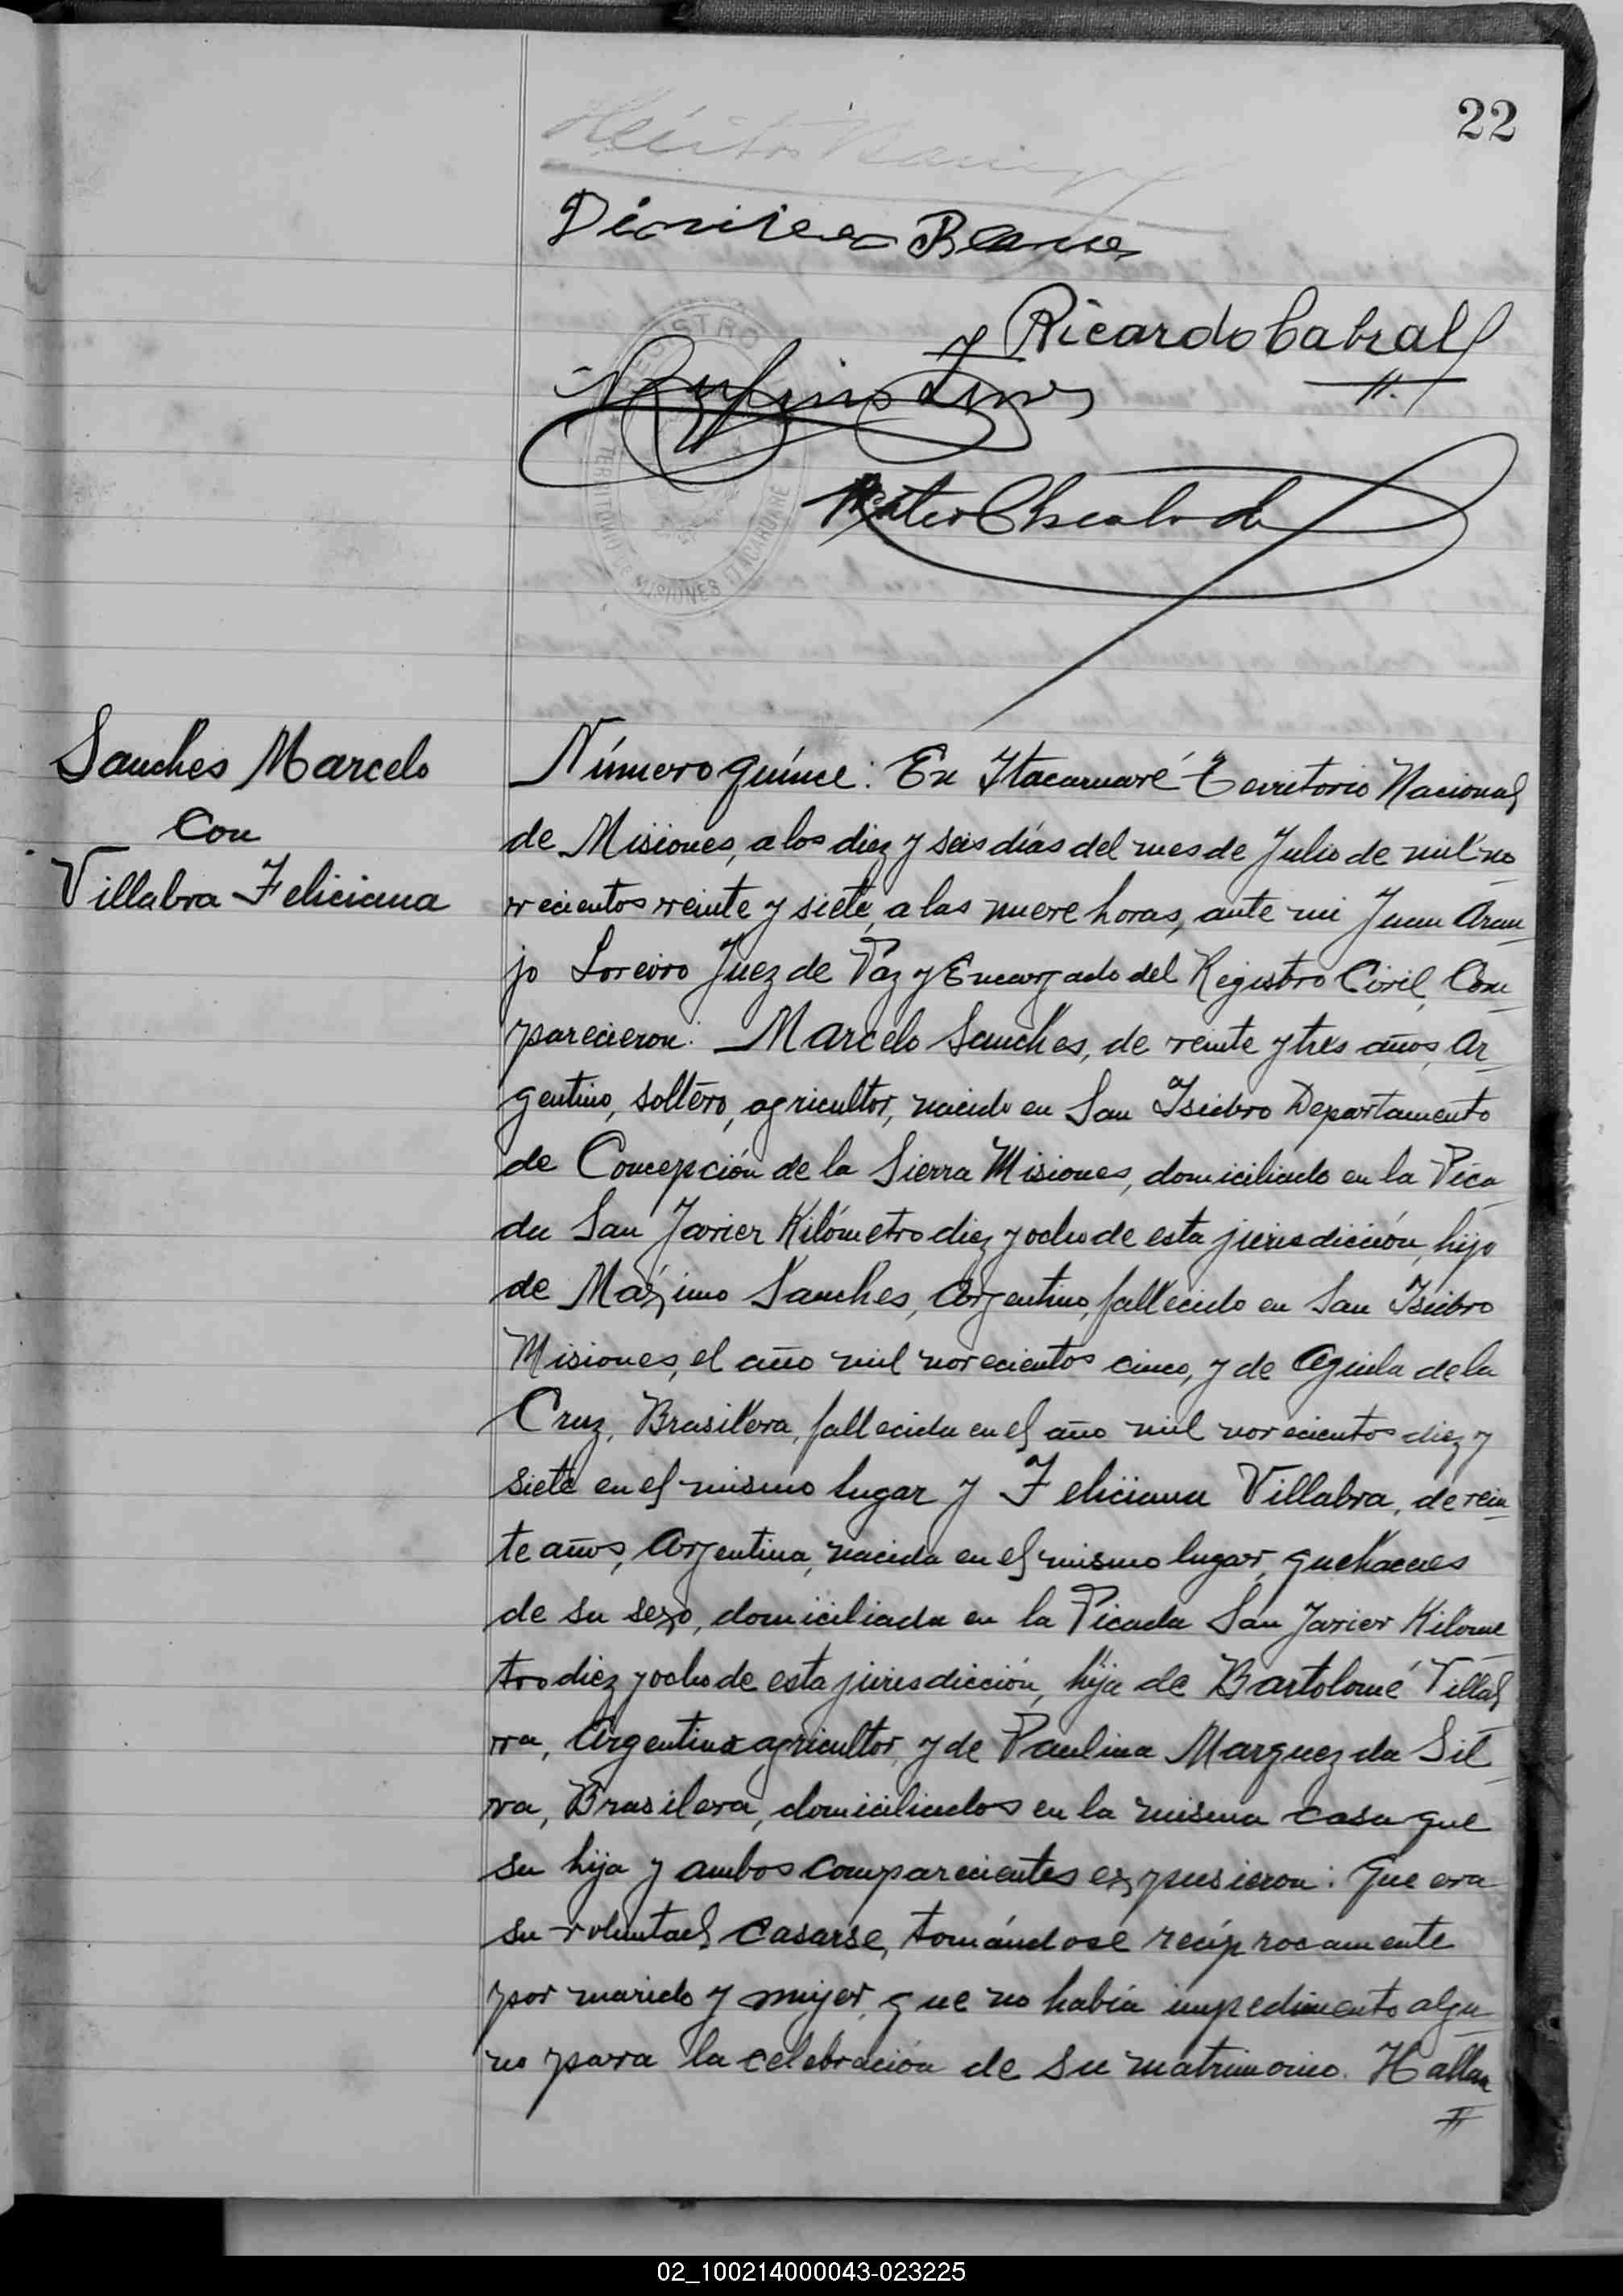 22
Ricardo Cabral
REGISTRO
TERRITORIO DE MISIONES ITACARUARE
Sanches Marcelo
Con
Villabra Feliciana
Número quince: En Itacaruaré Territorio Nacional
de Misiones, a los diez y seis días del mes de Julio de mil no
vecientos veinte y siete, a las nueve horas, ante mi Juan Arau
jo Loreiro Juez de Paz y Encargado del Registro Civil, Com
parecieron: Marcelo Sanches, de veinte y tres años, Ar
gentino, soltero, agricultor, nacido en San Isidro Departamento
de Concepción de la Sierra Misiones, domiciliado en la Pica
da San Javier Kilómetro diez y ocho de esta jurisdicción, hijo
de Máximo Sanches, Argentino, fallecido en San Isidro
Misiones, el año mil novecientos cinco, y de Aguila de la
Cruz, Brasilera, fallecida en el año mil novecientos diez y
siete en el mismo lugar y Feliciana Villabra, de vein
te años, Argentina, nacida en el mismo lugar, quehaceres
de su sexo, domiciliada en la Picada San Javier Kilome
tro diez y ocho de esta jurisdicción, hija de Bartolomé Villal
va, Argentino agricultor, y de Paulina Marquez da Sil
va, Brasilera, domiciliados en la misma casa que
su hija y ambos comparecientes expusieron: Que era
su voluntad casarse, tomándose recíprocamente
por marido y mujer, que no había impedimento algu
no para la celebración de su matrimonio. Hallan
02_100214000043-023225